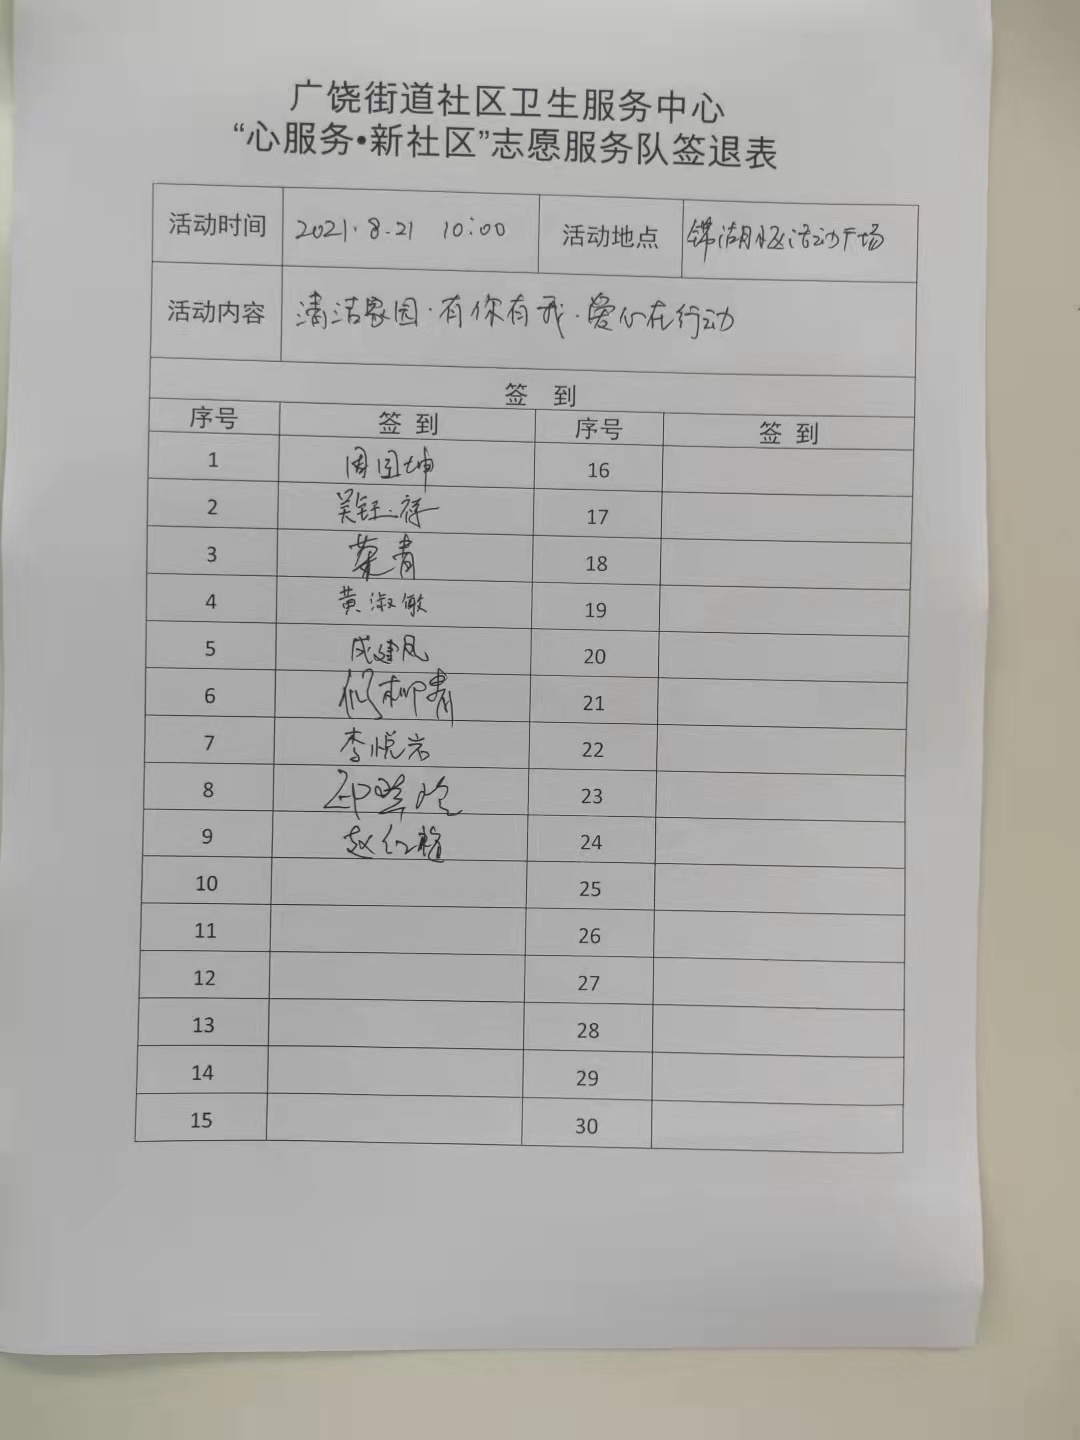 广饶街道社区卫生服务中心
“心服务•新社区”志愿服务队签退表
活动时间 2021.8.21 10:00 活动地点 锦湖小区活动广场
活动内容 清洁家园·有你有我·爱心在行动
签 到
序号 签 到 序号 签 到
1 周国坤 16
2 吴钰祥 17
3 青 18
4 黄淑敏 19
5 成建凤 20
6 柳青 21
7 李悦岩 22
8 邱 23
9 赵红 24
10 25
11 26
12 27
13 28
14 29
15 30